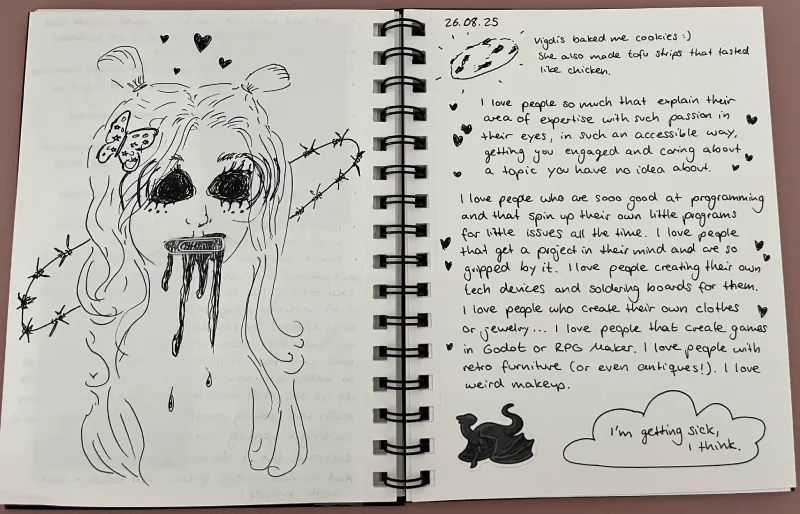 26.08.25
Vigdis baked me cookies :)
She also made tofu strips that tasted
like chicken.
I love people so much that explain their
area of expertise with such passion in
their eyes, in such an accessible way,
getting you engaged and caring about
a topic you have no idea about.
I love people who are sooo good at programming
and that spin up their own little programs
for little issues all the time. I love people
that get a project in their mind and are so
gripped by it. I love people creating their own
tech devices and soldering boards for them.
I love people who create their own clothes
or jewelry... I love people that create games
in Godot or RPG Maker. I love people with
retro furniture (or even antiques!). I love
weird makeup.
I'm getting sick,
I think.